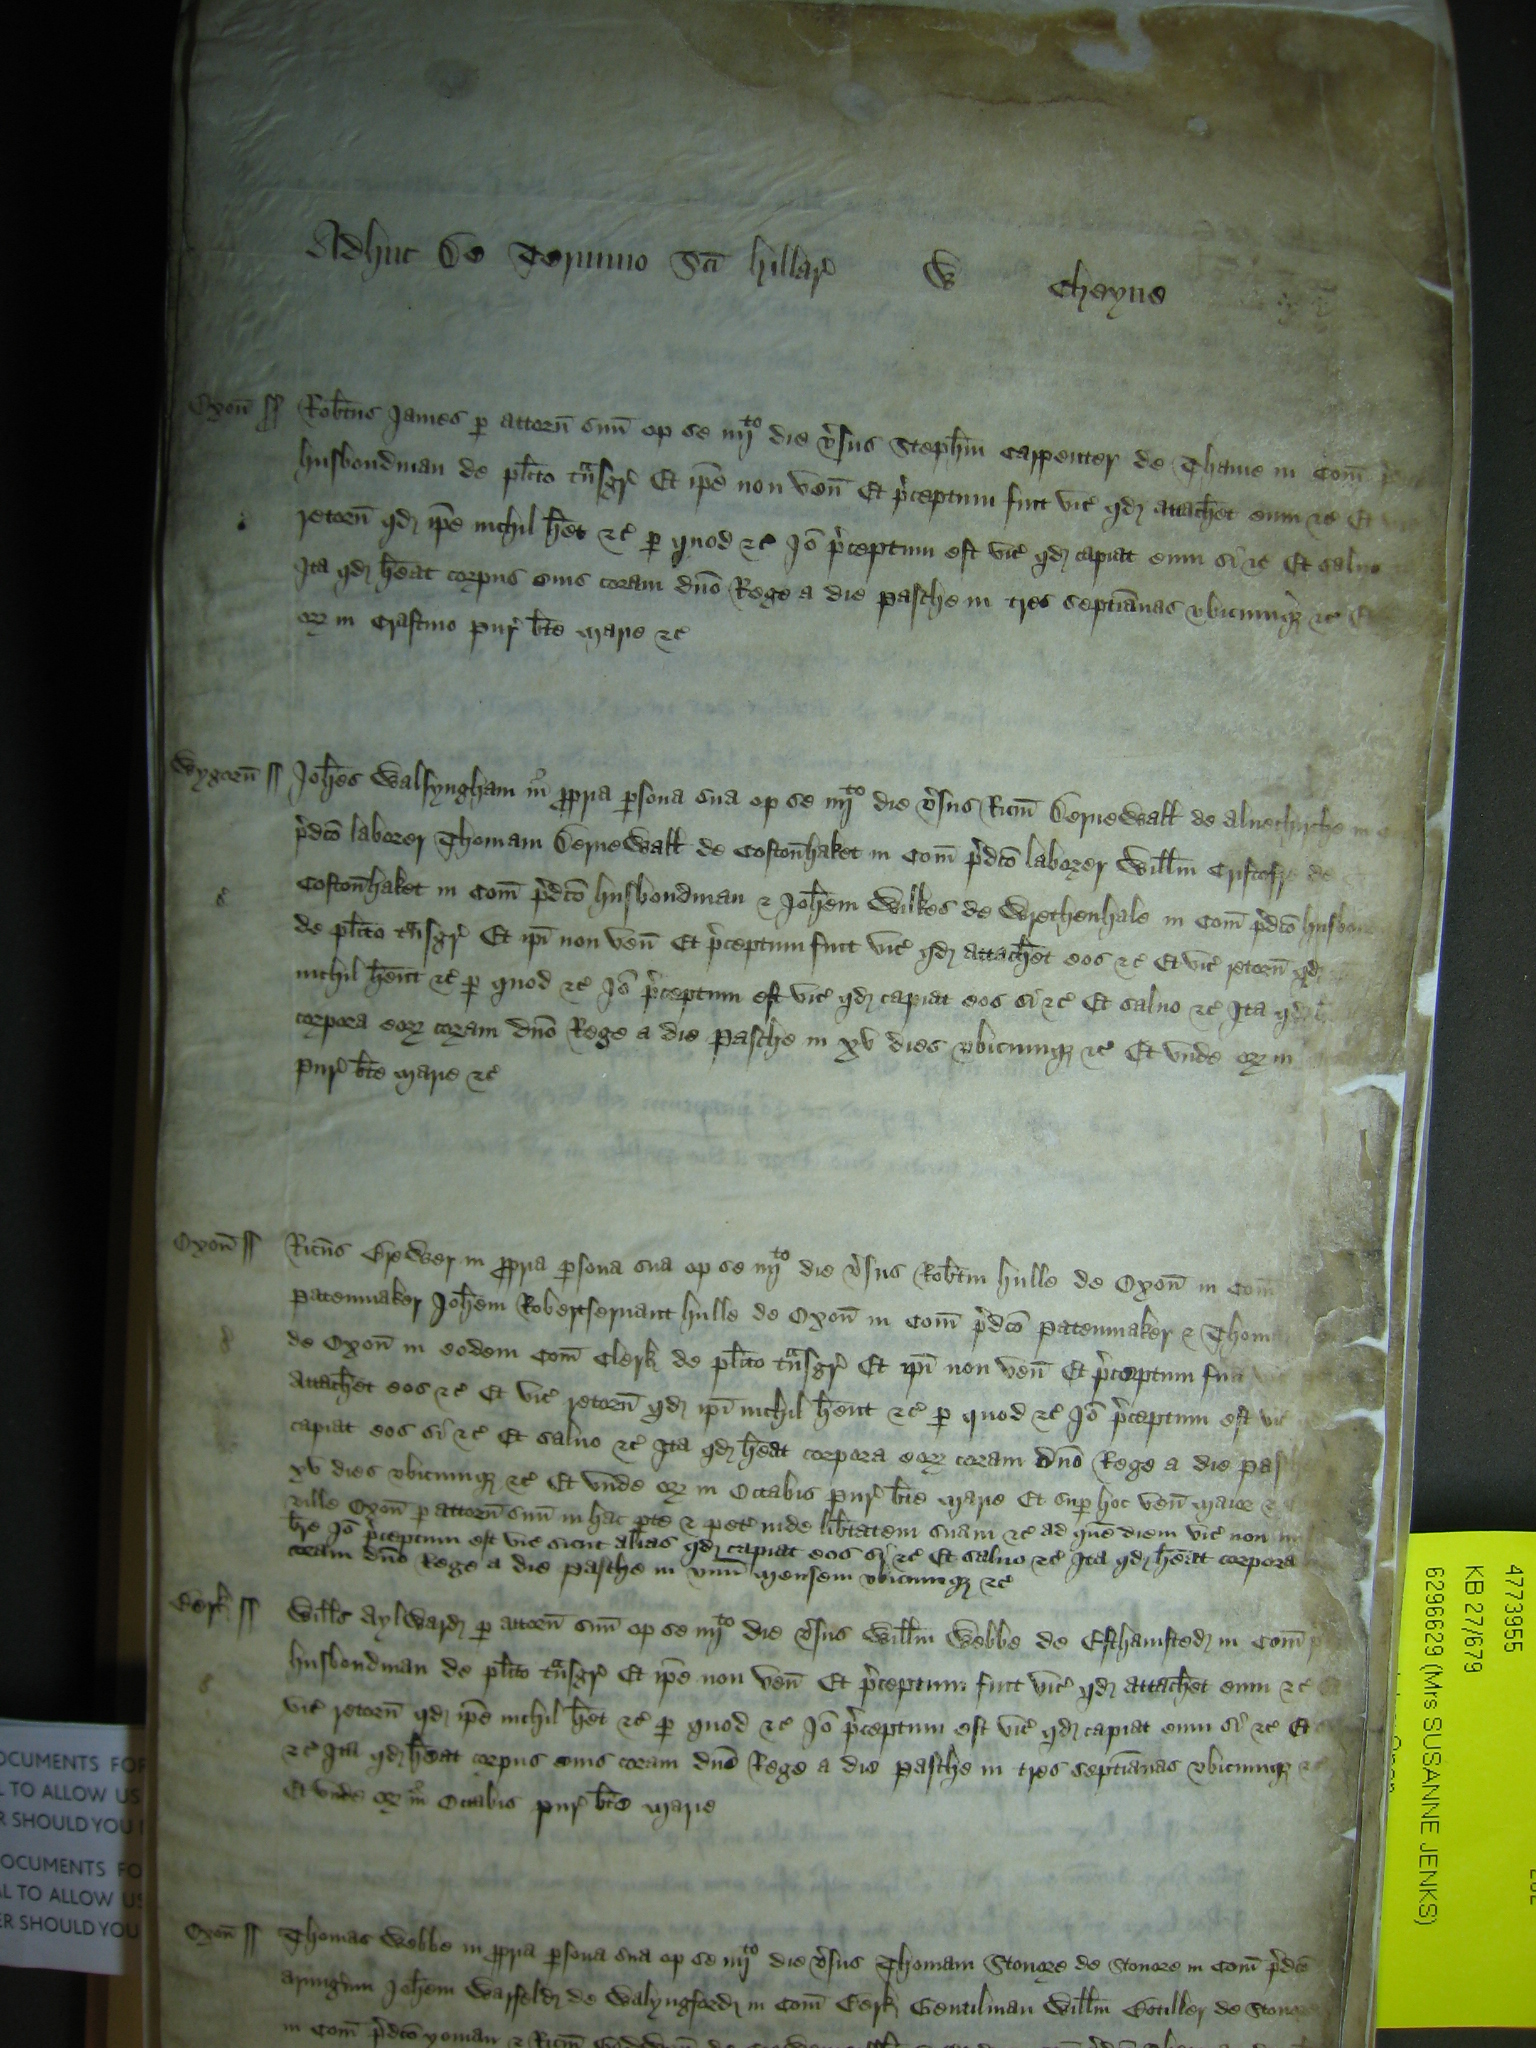 Adhuc de Termino Sci hillar W Cheyne
Oxon ss Robtus James p attorn suu op se iiijto die vsus Stephm Carpenter de Thame in Com
husbondman de plito tnsgr Et ipe non ven Et pceptum fuit vic qd attachet eum &c Et
retorn qd ipe nichil het &c p quod &c Io pceptum est vic qd capiat eum si &c Et saluo
Ita qd heat corpus eius coram dno Rege a die Pasche in tres septianas vbicumq &c
ex in Crastino Pur bte Marie &c
Wygorn ss Johes Walsyngham in ppria psona sua op se iiijto die vsus Ricm Bernewall de Aluechirche in
pdco laborer Thomam Bernewall de Costonhaket in Com pdco laborer Willm de
Costonhaket in Com pdco husbondman & Johem Wilkes de Wrethenhale in Com pdco
de plito tnsgr Et ipi non ven Et pceptum fuit vic qd attachet eos &c Et vic retorn qd
nichil hent &c p quod &c Io pceptum est vic qd capiat eos si &c Et saluo &c Ita qd
corpora eor coram dno Rege a die Pasche in xv dies vbicumq &c Et vnde ex in
Pur bte Marie &c
Oxon ss Ricus Brewer in ppria psona sua op se iiijto die vsus Robtm hulle de Oxon in Com
Patenmaker Johem Robertseruant hulle de Oxon in Com pdco Patenmaker & Thom
de Oxon in eodem Com Clerk de plito tnsgr Et ipi non ven Et pceptum fuit
attachet eos &c Et vic retorn qd ipi nichil hent &c p quod &c Io pceptum est vic
capiat eos si &c Et saluo &c Ita qd heat corpora eor coram dno Rege a die
xv dies vbicumq &c Et vnde ex in Octabis Pur bte Marie Et sup hoc ven maior &
ville Oxon p attorn suu in hac pte & pet inde libtatem suam &c ad quē diem vic non
bre Io pceptum est vic sicut alias qd capiat eos si &c Et saluo &c Ita qd heat corpora
coram dno Rege a die Pasche in vnu mensem vbicumq &c
Berk ss Wills Aylward p attorn suu op se iiijto die vsus Willm Webbe de Esthamsted in Com
husbondman de plito tnsgr Et ipe non ven Et pceptum fuit vic qd attachet eum &c
vic retorn qd ipe nichil het &c p quod &c Io pceptum est vic qd capiat eum si &c Et
&c Ita qd heat corpus eius coram dno Rege a die Pasche in tres septianas vbicumq &c
Et vnde ex in Octabis Pur bte Marie
Oxon ss Thomas Webbe in ppria psona sua op se iiijto die vsus Thomam Stonore de Stonore in Com pdco
armigum Johem Warfeld de Walyngford in Com Berk Gentilman Willm Botiller de
in Com pdco yoman & Ricm
OCUMENTS FOR
L TO ALLOW US
R SHOULD YOU
OCUMENTS FO
AL TO ALLOW US
ER SHOULD YOU
4773955
KB 27/679
6296629 (Mrs SUSANNE JENKS)